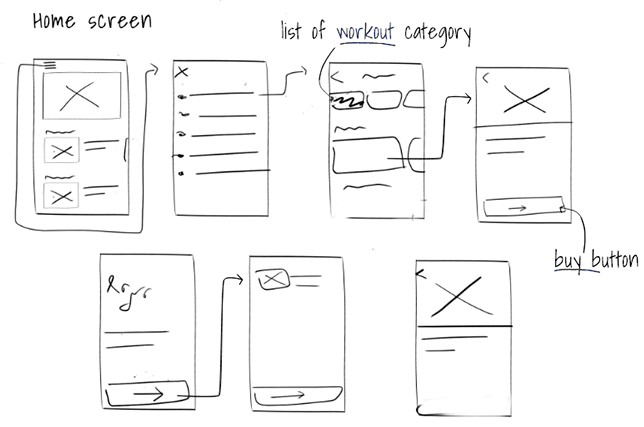 Home screen
list of workout category
buy button